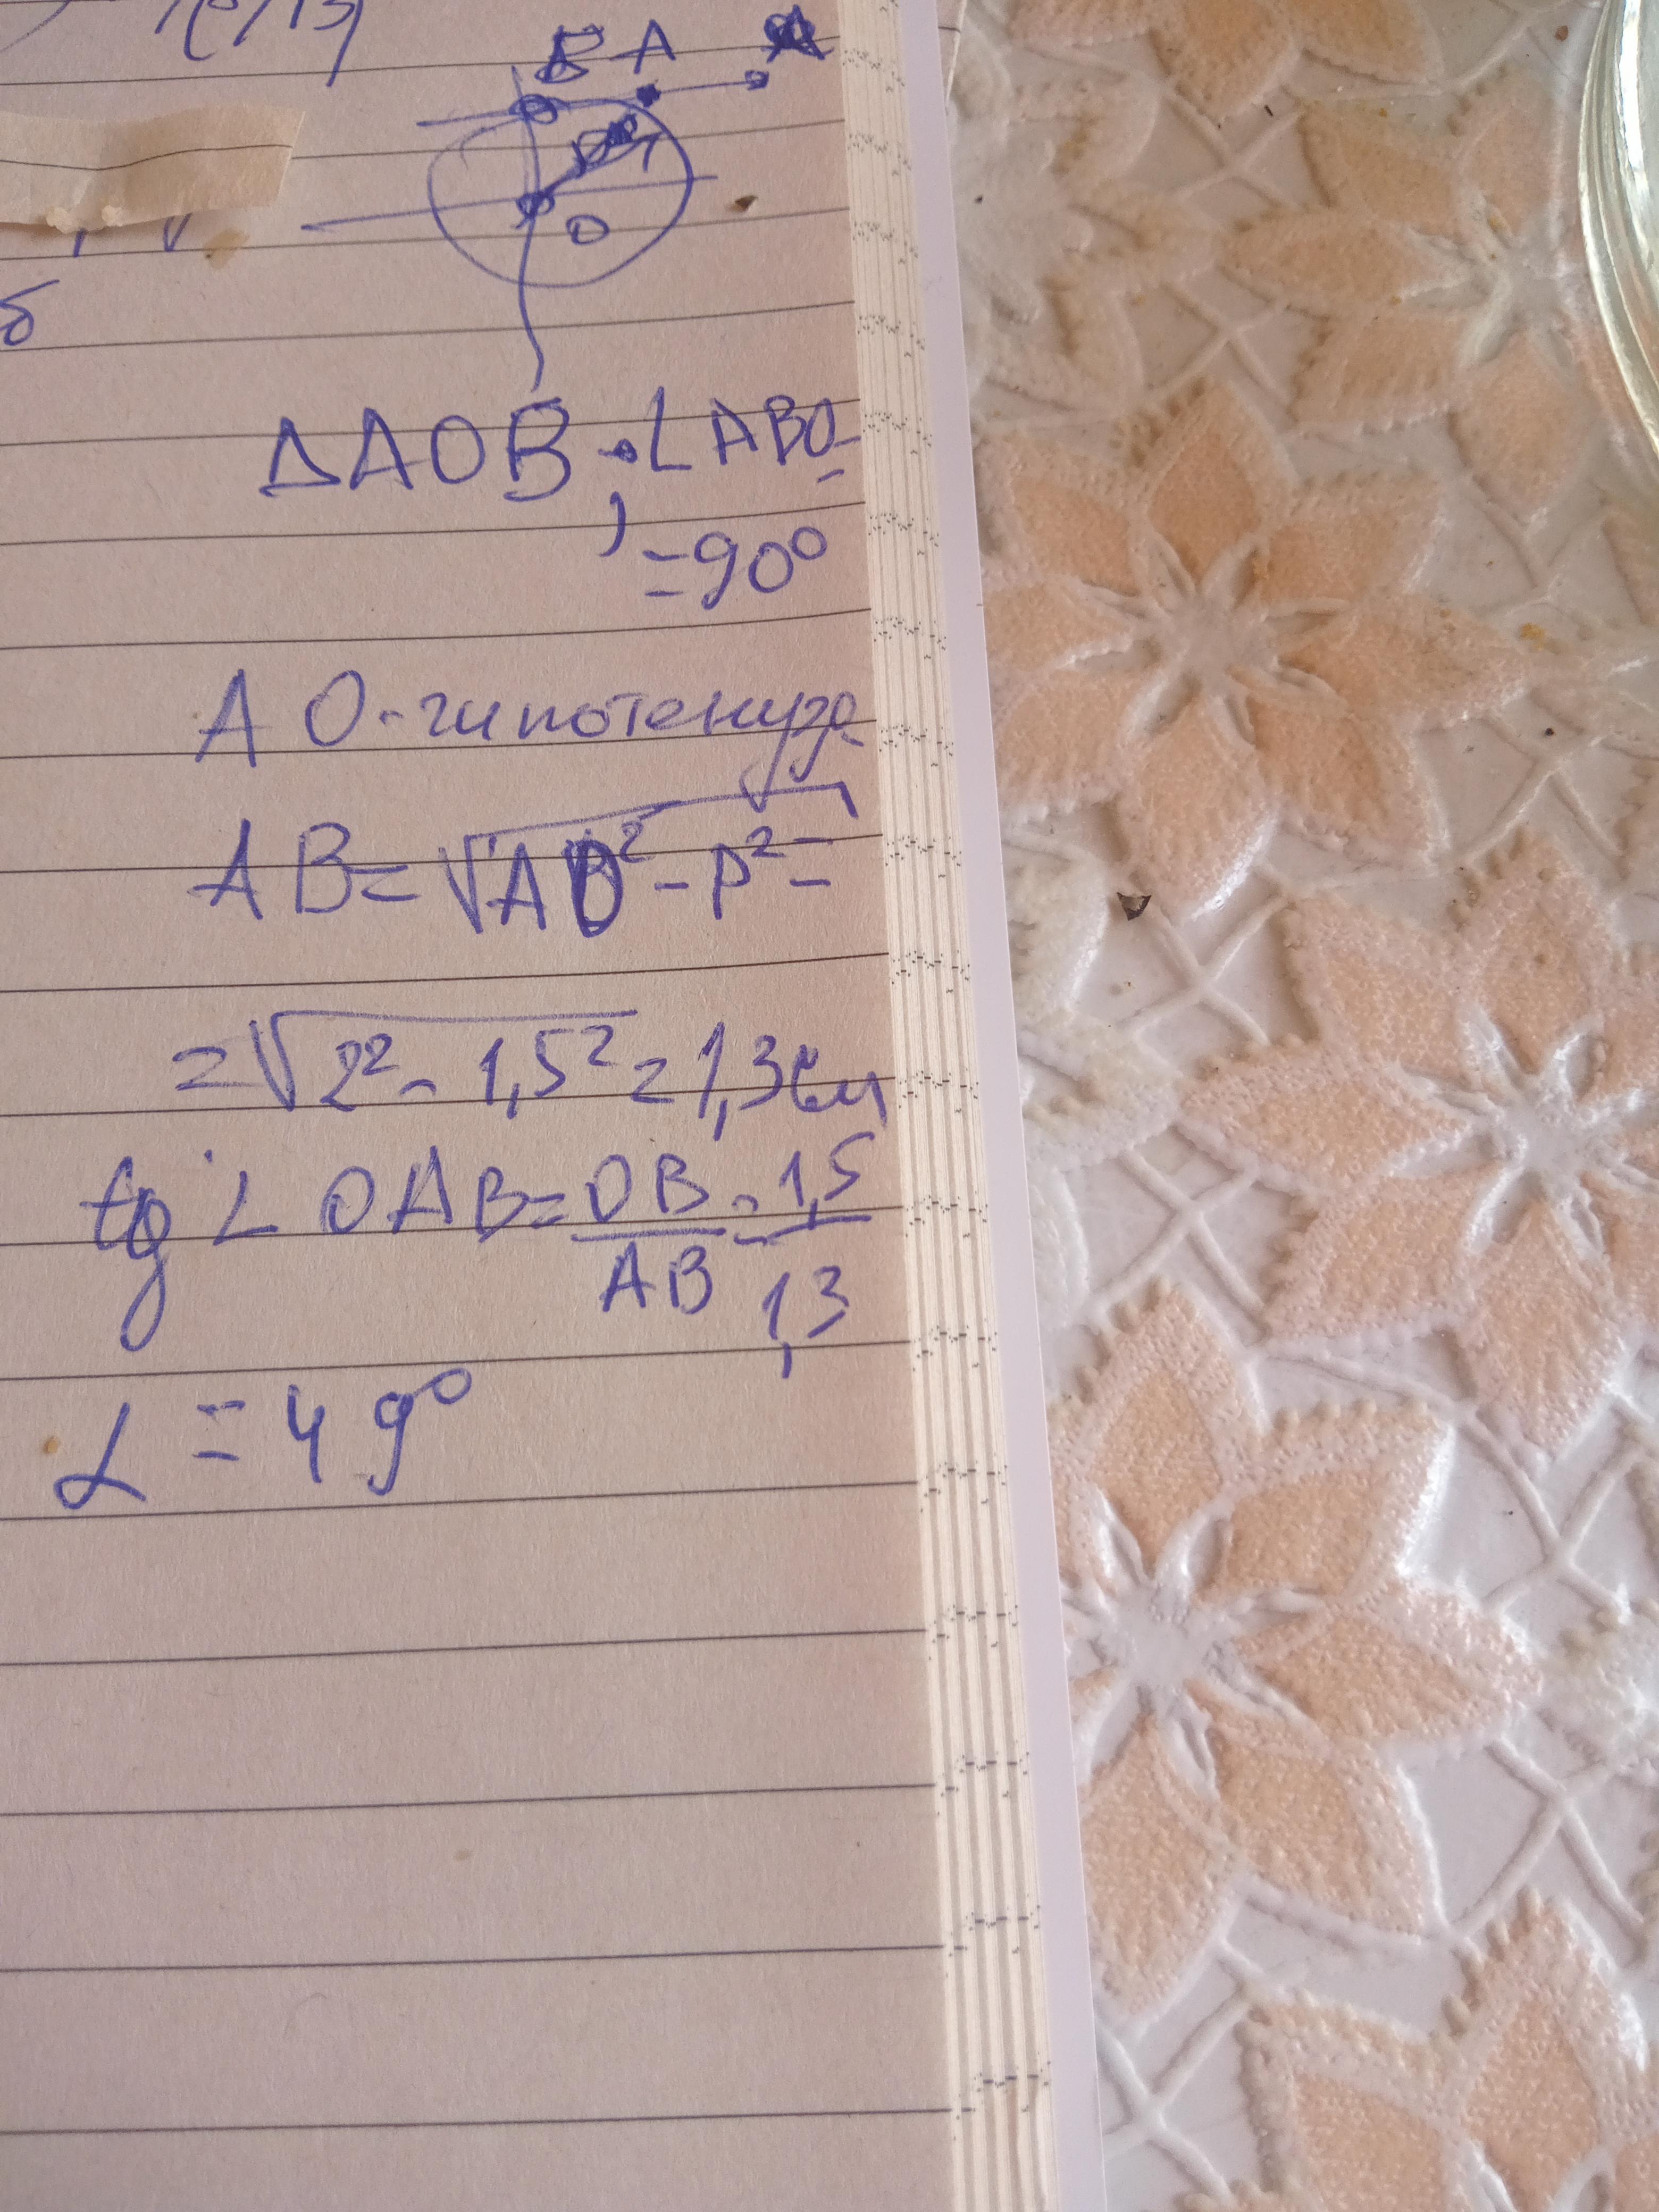 B A
r
O
б
ΔAOB; ∠ABO =
= 90°
AO - гипотенуза
AB = √AO² - P² =
= √2² - 1,5² = 1,3 см
tg ∠OAB = OB/AB = 1,5/1,3
∠ = 49°